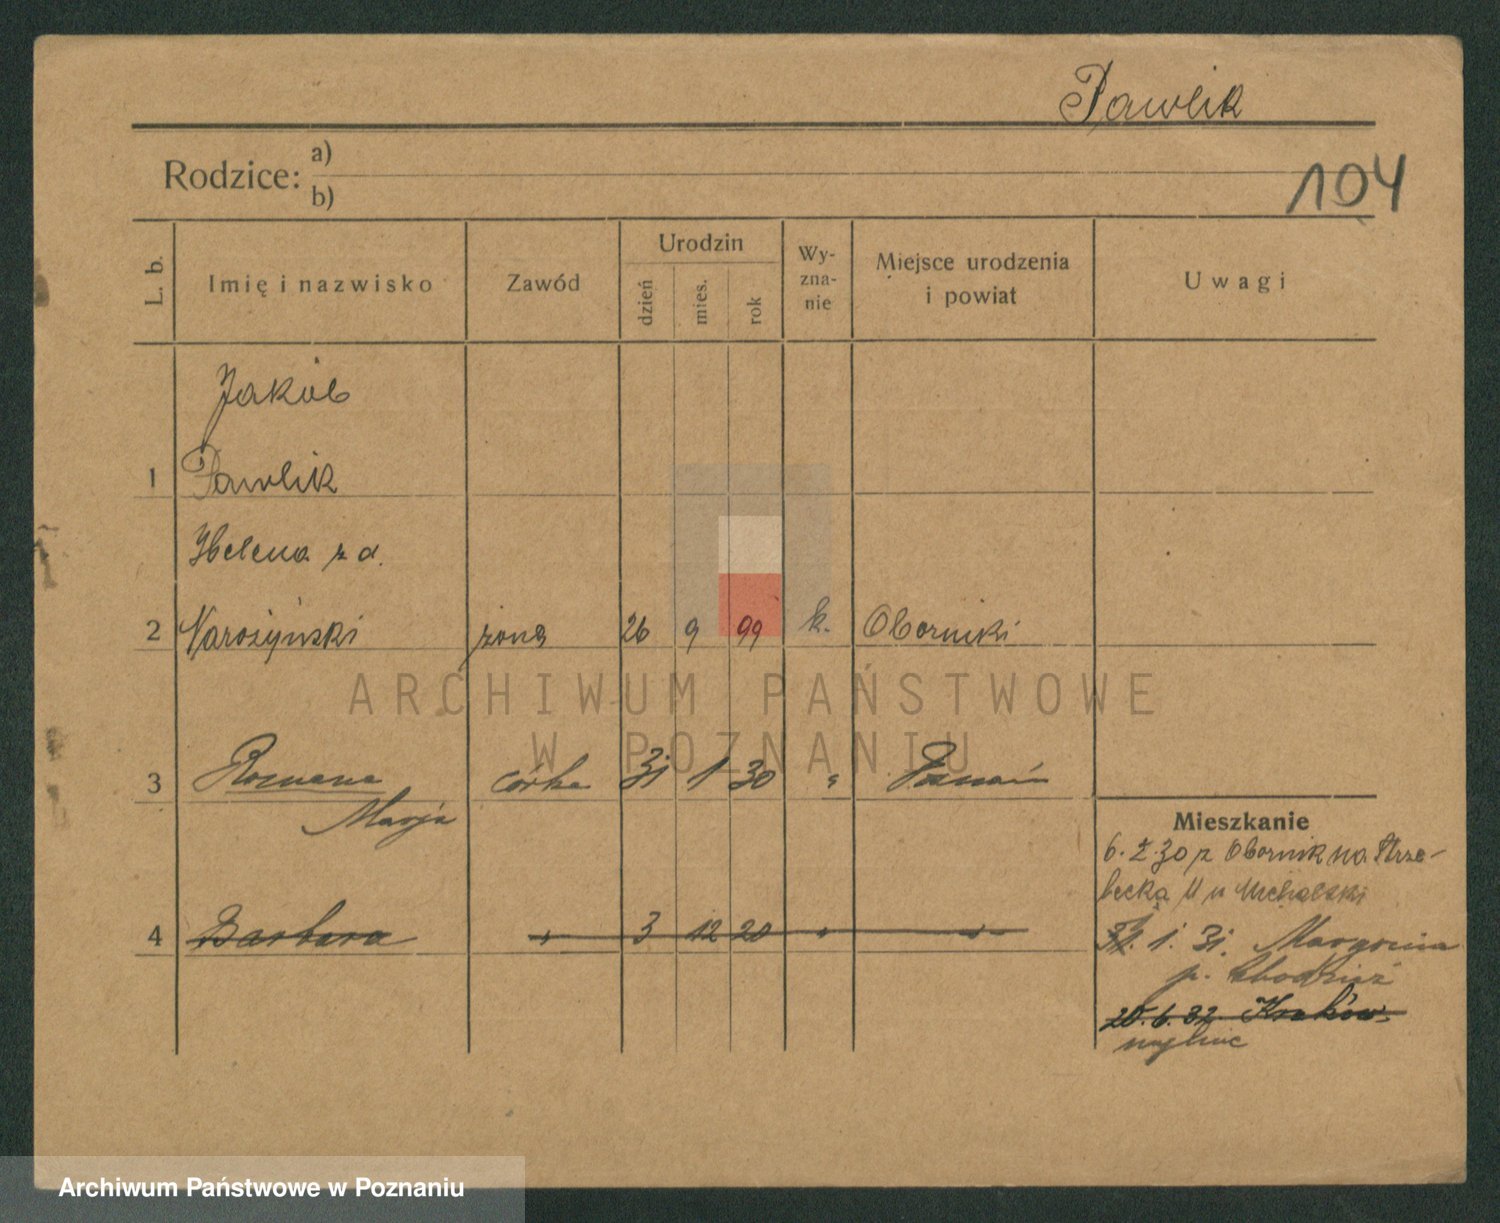 Pawlik
104
Rodzice: a)
b)
L. b.
Imię i nazwisko
Zawód
Urodzin
dzień
mies.
rok
Wy-
zna-
nie
Miejsce urodzenia
i powiat
Uwagi
Jakób
1 Pawlik
Helena z d.
2 Narożyński żona 26 9 99 k. Oborniki
3 Romana córka 31 1 30 " Poznań
Marja
4 Barbara " 3 12 20 " "
Mieszkanie
6. 2. 30 z Obornik na Strze-
lecką 11 u Michalski
1. 31. Margonin
p. Chodzież
20. 6. 32. Kraków
mylne
ARCHIWUM PAŃSTWOWE
W POZNANIU
Archiwum Państwowe w Poznaniu